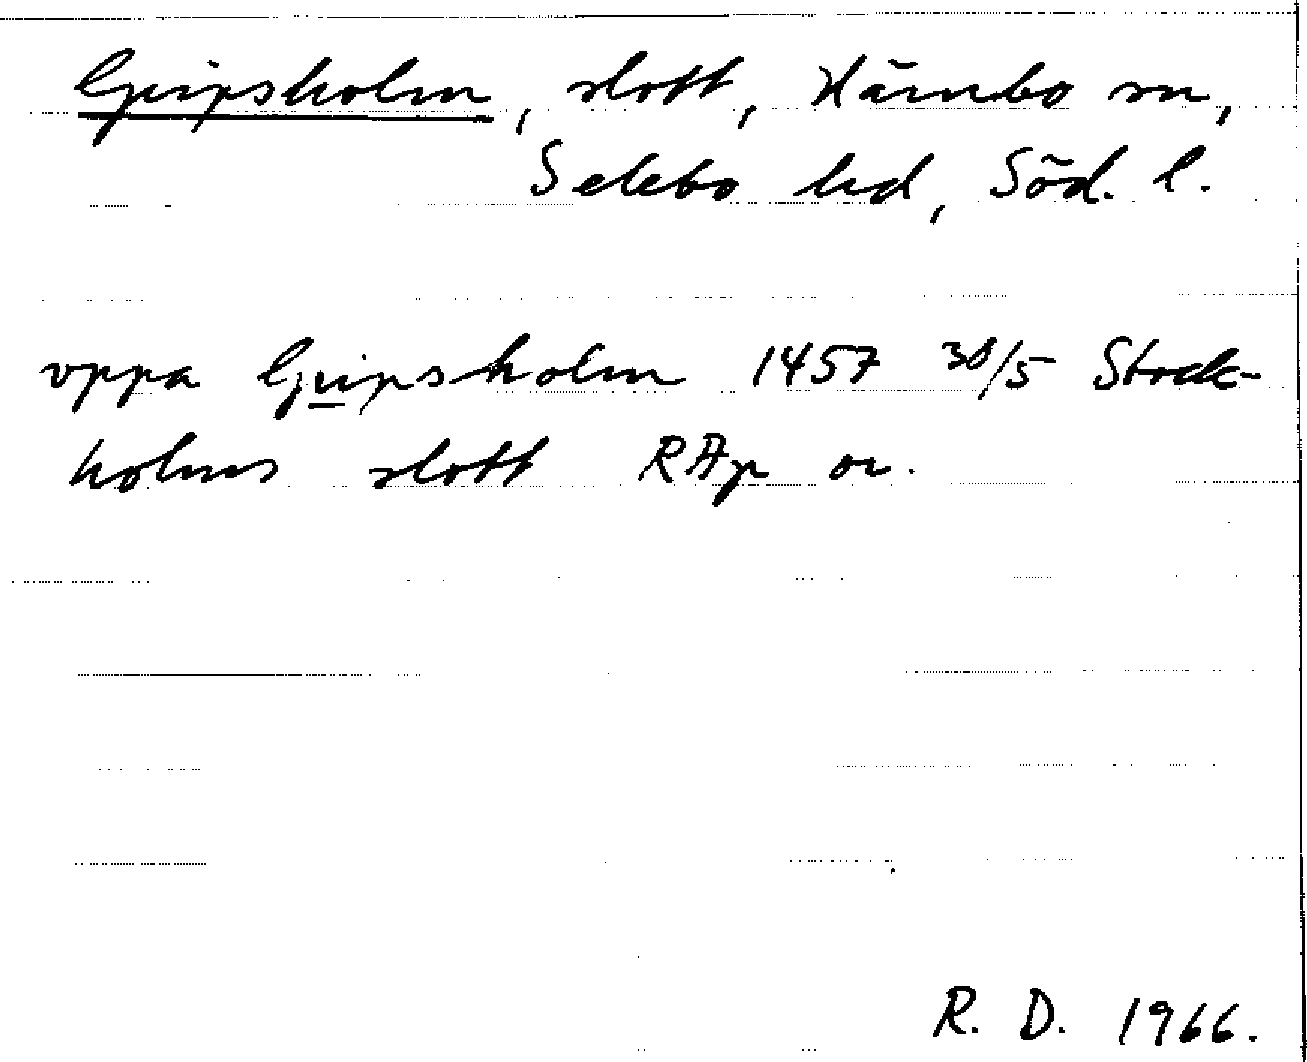 Gripsholm, slott, Kärnbo sn,
Selebo hd, Söd. l.
vppa Gripsholm 1457 30/5 Stock-
holms slott RAp or.
R. D. 1966.